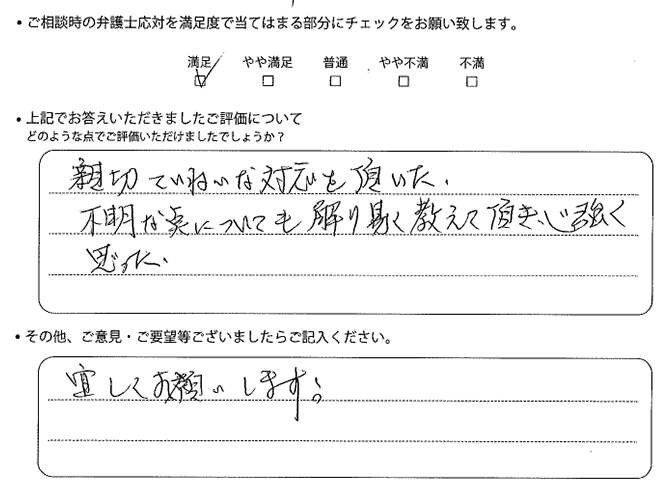 ・ご相談時の弁護士応対を満足度で当てはまる部分にチェックをお願い致します。
満足 やや満足 普通 やや不満 不満
・上記でお答えいただきましたご評価について
どのような点でご評価いただけましたでしょうか？
親切ていねいな対応を頂いた.
不明な点についても解り易く教えて頂き、心強く
思った.
・その他、ご意見・ご要望等ございましたらご記入ください。
宜しくお願いします。